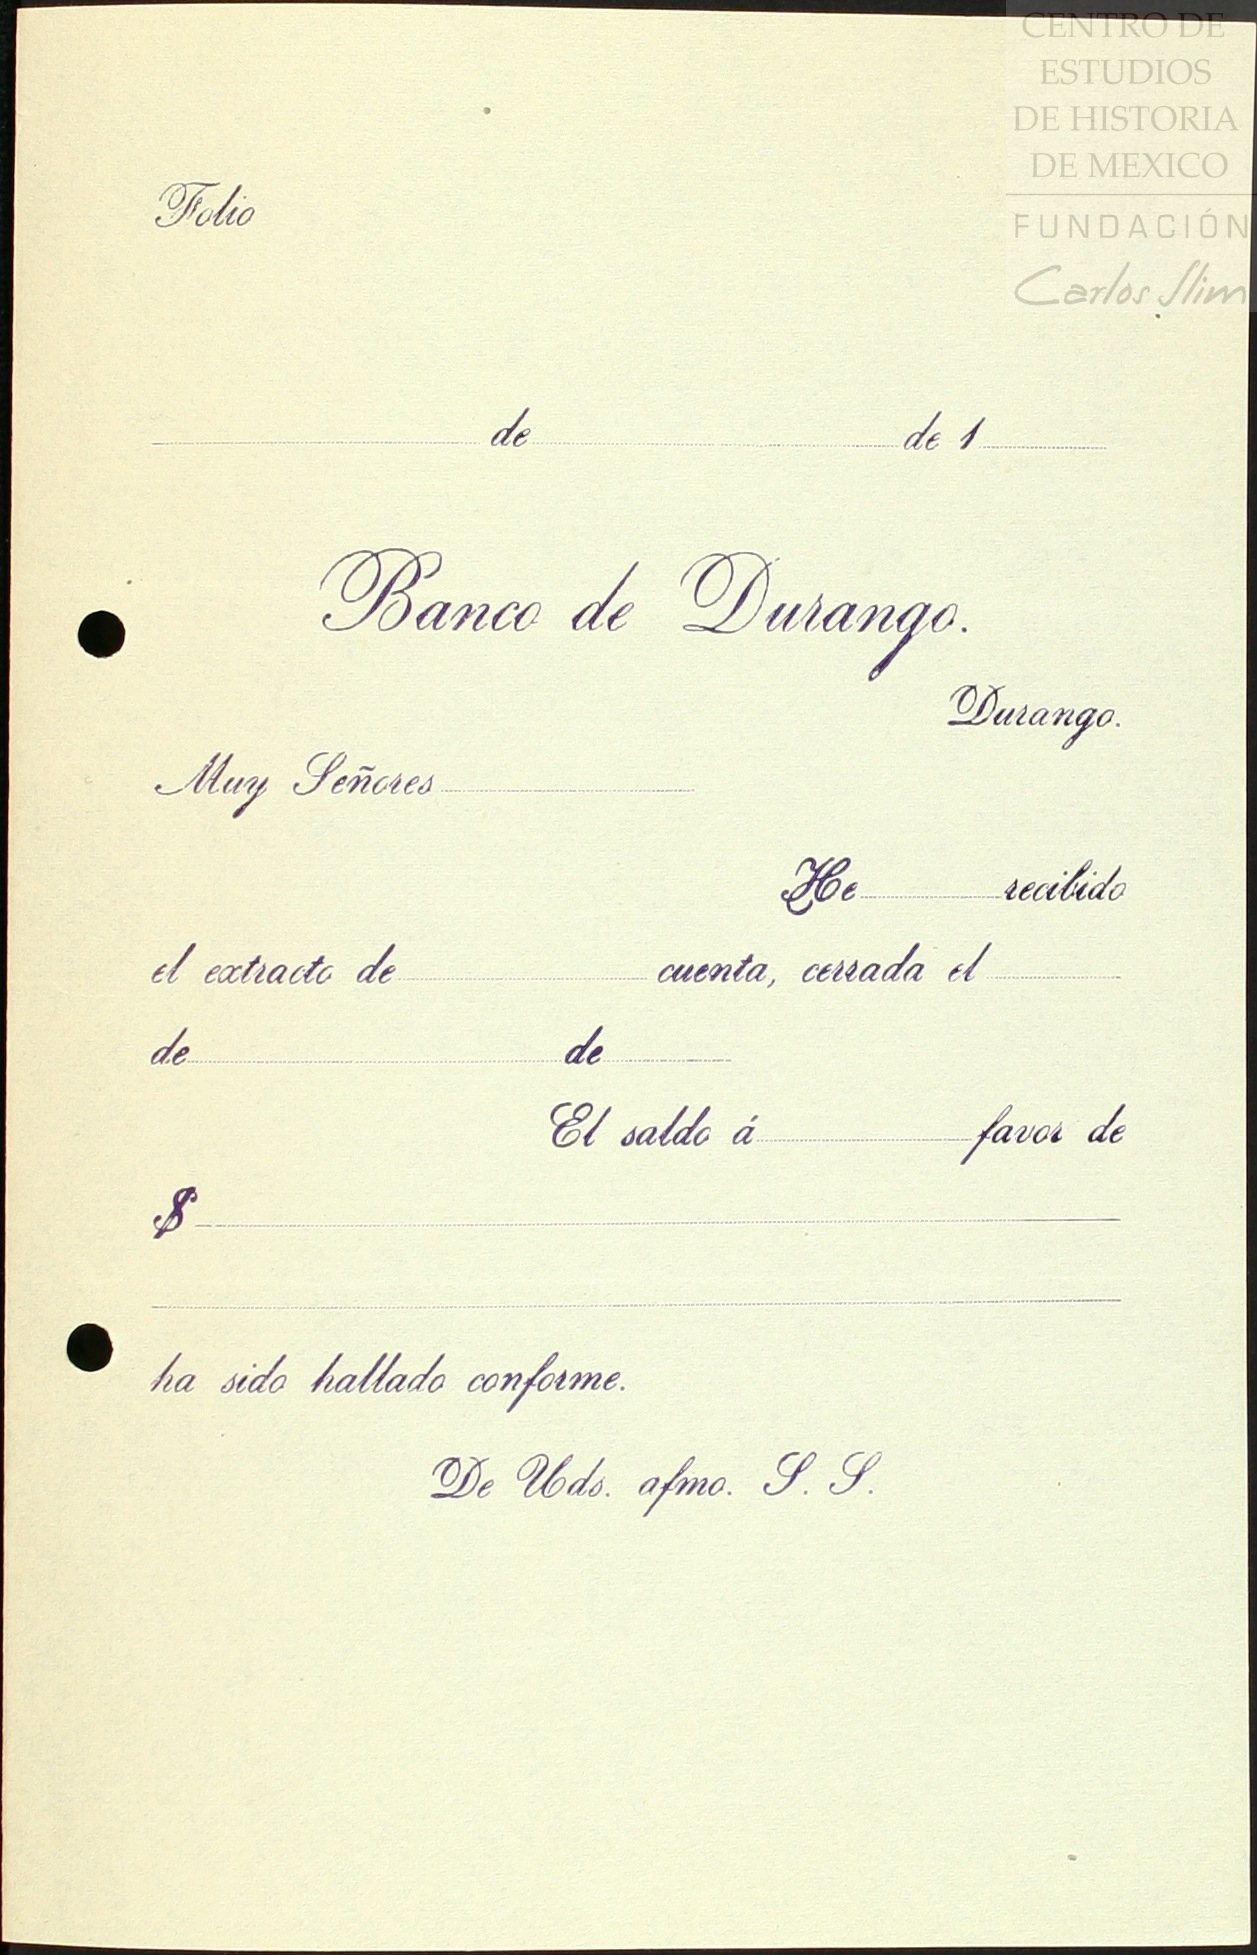 CENTRO DE
ESTUDIOS
DE HISTORIA
DE MEXICO
FUNDACIÓN
Carlos Slim
Folio
de de 1
Banco de Durango.
Durango.
Muy Señores
He recibido
el extracto de cuenta, cerrada el
de de
El saldo á favor de
$
ha sido hallado conforme.
De Uds. afmo. S. S.